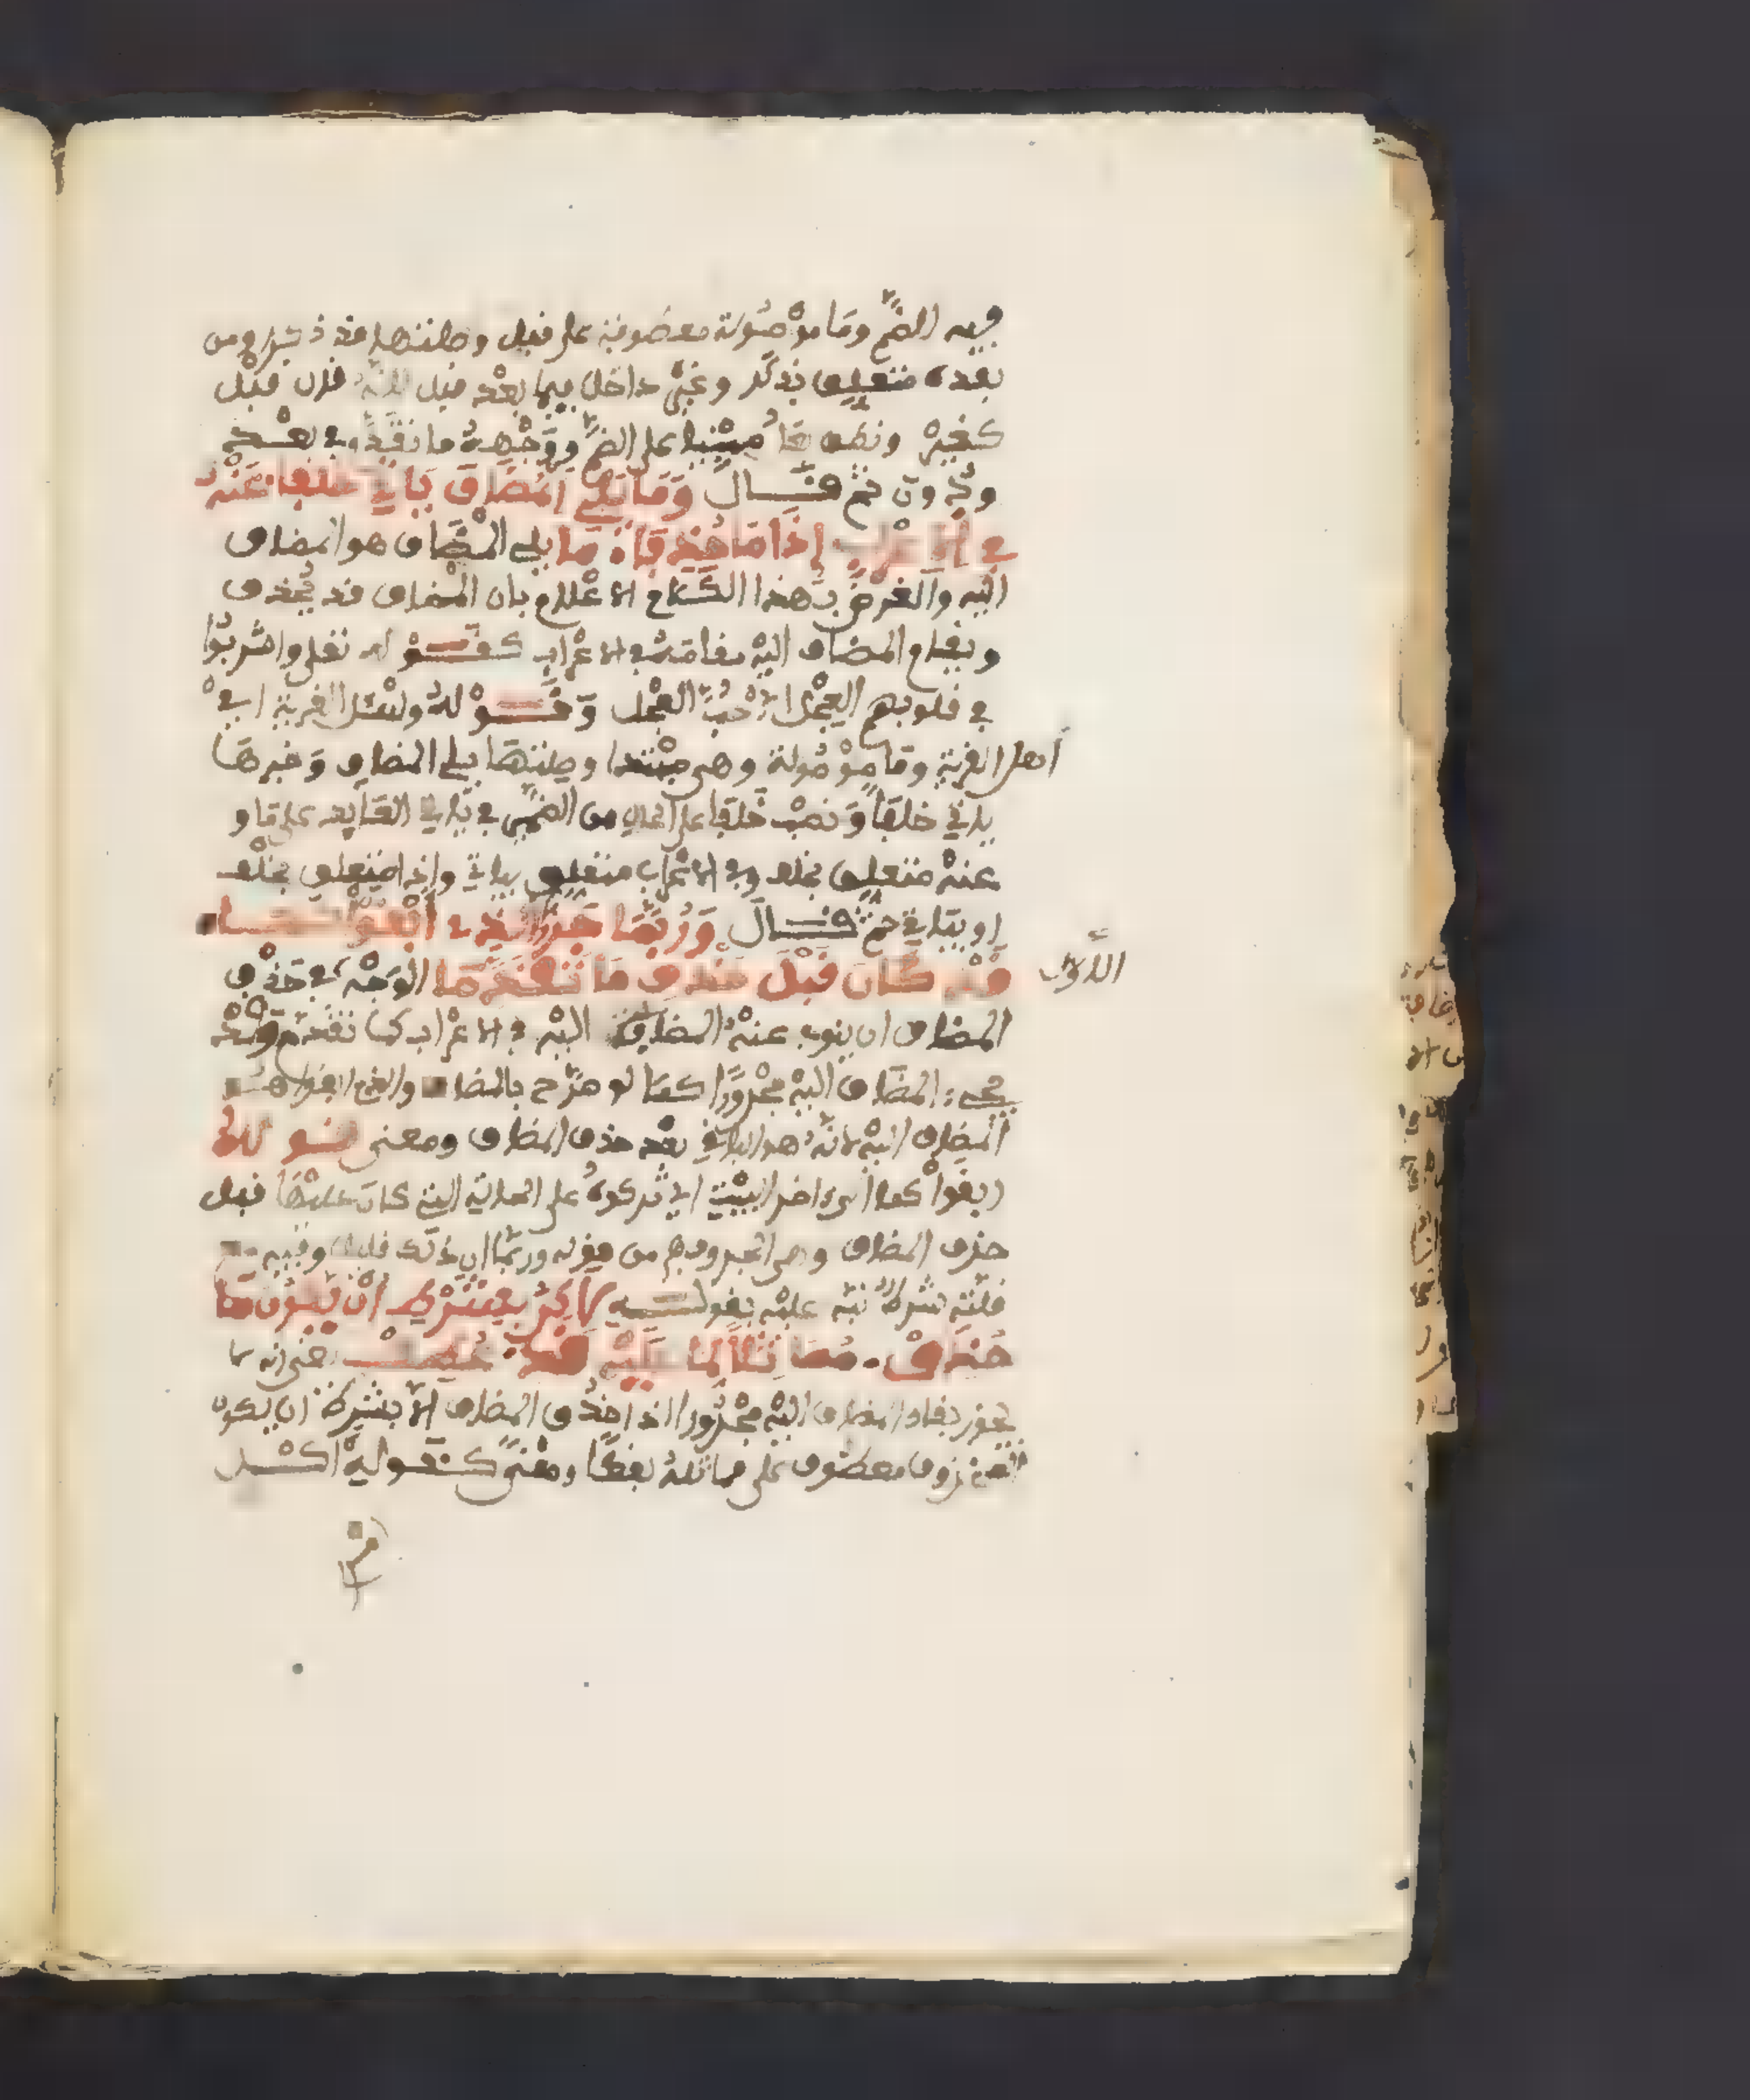 فيه الضم وما موصولة معطوفة على قبل وصلتها قد ذكرا ومن
بعده متعلق بذكر وغير داخل فيما بعد قبل لأنه قال قبل
كغير ونطق بها مبنيا على الضم ووجهه ما تقدم في بعد
ودون ثم قال وما يلي المضاف ياتي خلفا عنه
في الاعراب إذا ما حذفا ما يلي المضاف هو المضاف
اليه والغرض بهذا الكلام الاعلام بان المضاف قد يحذف
ويقام المضاف اليه مقامه في الاعراب كقوله تعلى واشربوا
في قلوبهم العجل اي حب العجل وقوله وسئل القرية اي
أهل القرية وما موصولة وهي مبتدا وصلتها يلي المضاف وخبرها
ياتي خلفا ونصب خلفا على الحال من الضمير في ياتي العايد على ما و
عنه متعلق بخلف وفي الاعراب متعلق بياتي وإذا متعلق بخلف
او بياتي ثم قال وربما جروا الذي ابقوا كما
قد كان قبل حذف ما تقدما الوجه في حذف
الاول
المضاف ان ينوب عنه المضاف اليه في الاعراب كما تقدم وقد
يجيء المضاف اليه مجرورا كما لو صرح بالمضاف والذي ابقوا هو
المضاف اليه لانه هو الباقي بعد حذف المضاف ومعنى قوله
ابقوا كما الى اخر البيت اي تركوه على الحالة التي كان عليها قبل
حذف المضاف وهي الجر وفهم من قوله وربما ان ذلك قليل وفيه مع
قلته شرط نبه عليه بقوله لكن بشرط ان يكون ما
حذف مماثلا لما عليه قد عطف يعني انه لا
يجوز بقاء المضاف اليه مجرورا اذا حذف المضاف الا بشرط ان يكون
المحذوف معطوف على مماثله لفظا ومعنى كقوله اكل